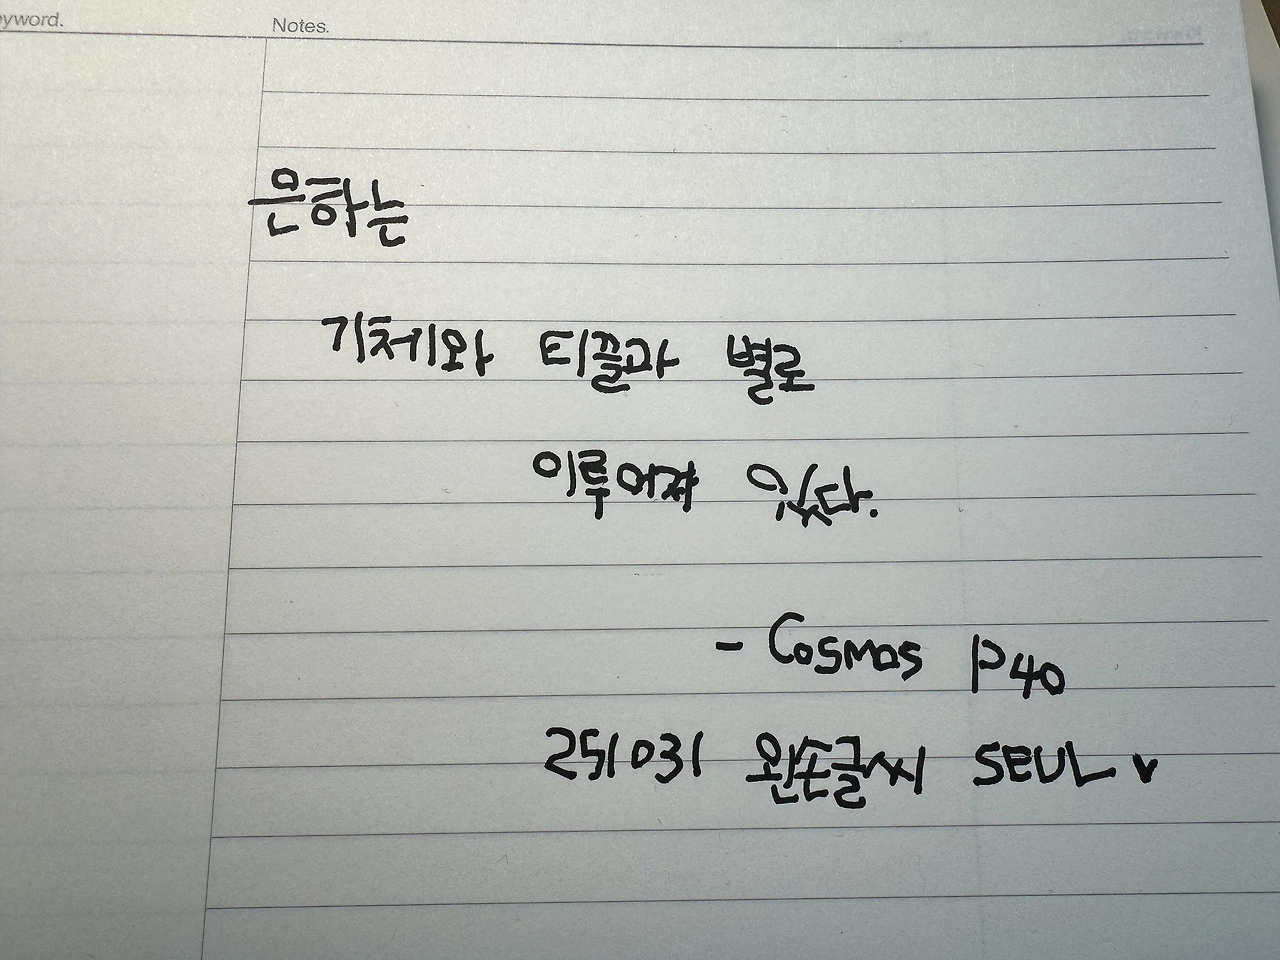 eyword.
Notes.
은하는
기체와 티끌과 별로
이루어져 있다.
- Cosmos P40
251031 왼손글씨 SEUL v